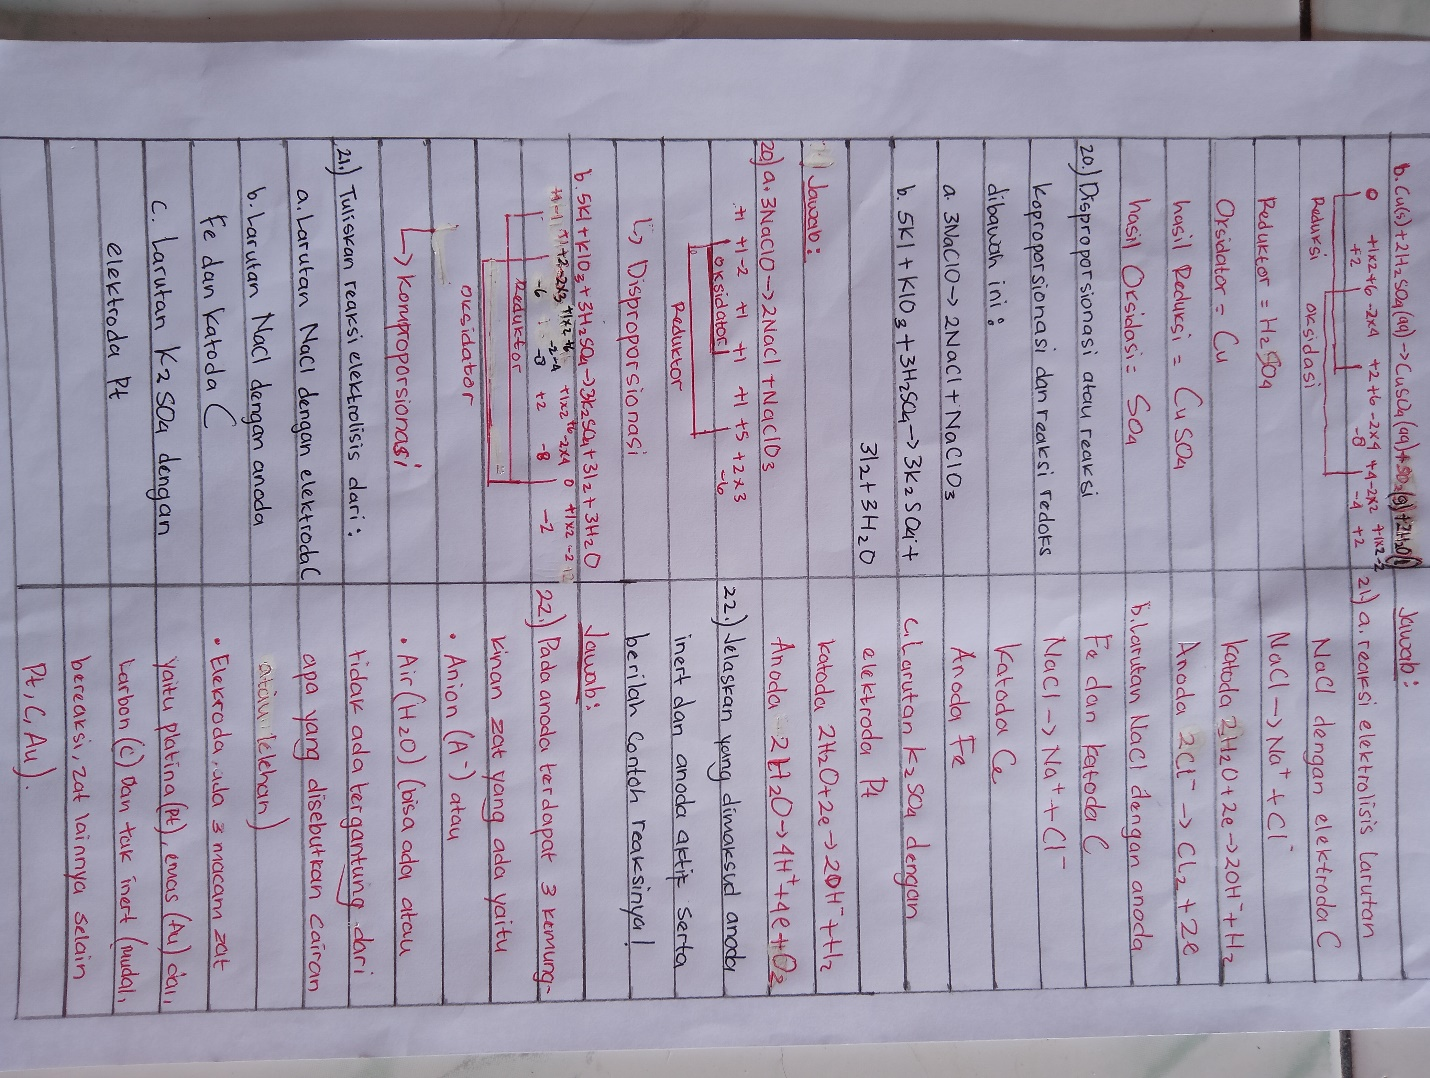 b. Cu(s) + 2H2SO4(aq) → CuSO4(aq) + SO2(g) + 2H2O(l)
0 +1x2+6-2x4 +2+6-2x4 +4-2x2 +1x2-2
+2 -8 -8 -4 +2
Reduksi oksidasi
Reduktor = H2SO4
Oksidator = Cu
hasil Reduksi = CuSO4
hasil Oksidasi = SO4
20.) Disproporsionasi atau reaksi
koproporsionasi dan reaksi redoks
dibawah ini :
a. 3NaClO → 2NaCl + NaClO3
b. 5KI + KIO3 + 3H2SO4 → 3K2SO4 +
3I2 + 3H2O
Jawab :
20) a. 3NaClO → 2NaCl + NaClO3
+1 +1-2 +1 +1 +1 +5 +2x3
-6
Oksidator
Reduktor
↳ Disproporsionasi
b. 5KI + KIO3 + 3H2SO4 → 3K2SO4 + 3I2 + 3H2O
-6 -8 +2 -8 -2
Reduktor
oksidator
↳ Komproporsionasi
21.) Tuliskan reaksi elektrolisis dari :
a. Larutan NaCl dengan elektroda C
b. Larutan NaCl dengan anoda
Fe dan Katoda C
c. Larutan K2SO4 dengan
elektroda Pt
Jawab :
21.) a. reaksi elektrolisis larutan
NaCl dengan elektroda C
NaCl → Na+ + Cl-
Katoda 2H2O + 2e → 2OH- + H2
Anoda 2Cl- → Cl2 + 2e
b. Larutan NaCl dengan anoda
Fe dan katoda C
NaCl → Na+ + Cl-
Katoda Ce
Anoda Fe
c. Larutan K2SO4 dengan
elektroda Pt
katoda 2H2O + 2e → 2OH- + H2
Anoda 2H2O → 4H+ + 4e + O2
22.) Jelaskan yang dimaksud anoda
inert dan anoda aktif serta
berilah contoh reaksinya!
Jawab :
22.) Pada anoda terdapat 3 kemung-
kinan zat yang ada yaitu
• Anion (A-) atau
• Air (H2O) (bisa ada atau
tidak ada tergantung dari
apa yang disebutkan cairan
atau lelehan)
• Elekroda, ada 3 macam zat
yaitu platina (Pt), emas (Au) dan
karbon (C) Dan tak inert (mudah
bereaksi, zat lainnya selain
Pt, C, Au).